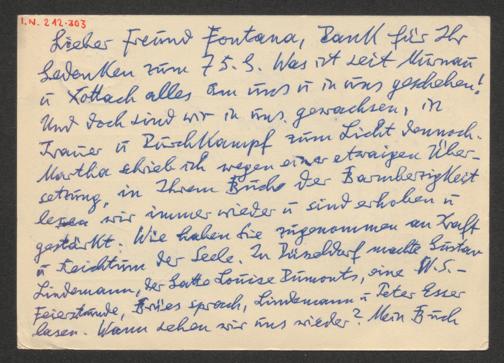 I.N. 212.303
Lieber Freund Fontana, Dank für Ihr
Gedenken zum 75.G. Was ist seit Murnau
u Rottach alles um uns u in uns geschehen!
Und doch sind wir in uns gewachsen, in
Trauer u Durchkampf zum Licht dennoch.
Martha schrieb ich wegen einer etwaigen Über-
setzung, in Ihrem Buch der Barmherzigkeit
lesen wir immer wieder u sind erhoben u
gestärkt. Wie haben Sie zugenommen an Kraft
u Reichtum der Seele. In Düsseldorf machte Gustav
Lindemann, der Gatte Louise Dumonts, eine W.S.-
Feierstunde, sprach, Lindemann u Peter Esser
lasen. Wann sehen wir uns wieder? Mein Buch